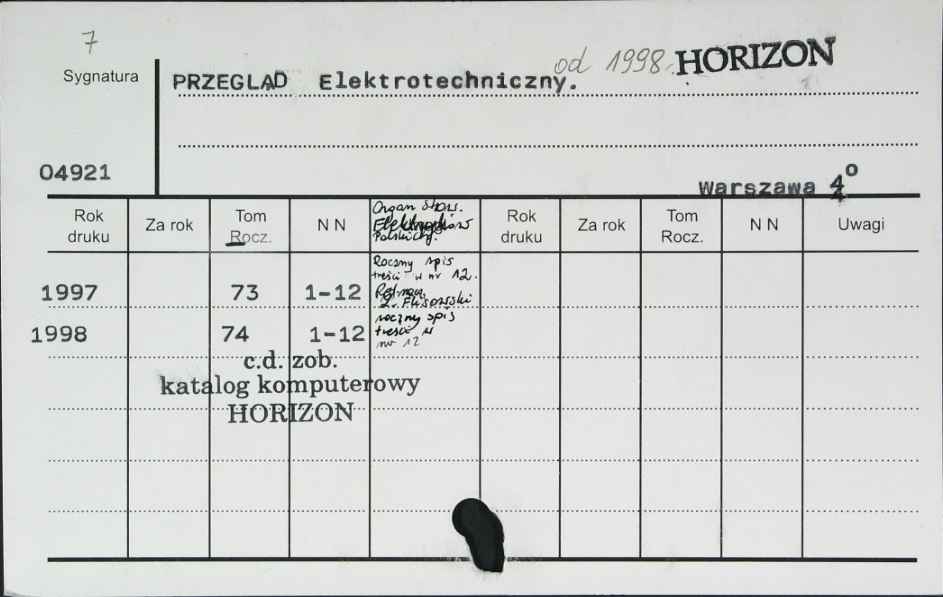 7
od 1998 HORIZON
Sygnatura
PRZEGLĄD Elektrotechniczny.
04921
Warszawa 4°
Rok druku Za rok Tom Rocz. N N Organ Stow. Elektryków Polskich. Rok druku Za rok Tom Rocz. N N Uwagi
Roczny spis
treści w nr 12.
1997 73 1-12 Red. nacz.
1998 74 1-12 roczny spis
treści w
nr 12
c.d. zob.
katalog komputerowy
HORIZON